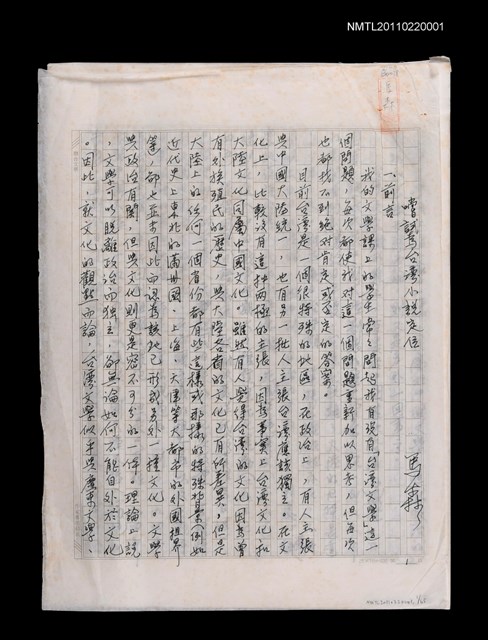 NMTL20110220001
嘗試為台灣小說定位
馬森
一、前言
我的文學課上的學生常常問起我有沒有「台灣文學」這一
個問題，每次都使我對這一個問題重新加以思索，但每次
也都找不到絕對肯定或否定的答案。
目前台灣是一個很特殊的地區，在政治上，有人主張
與中國大陸統一，也有另一批人主張台灣應該獨立。在文
化上，比較沒有這種兩極的主張，因為事實上台灣文化和
大陸文化同屬中國文化。雖然有人覺得台灣的文化因為曾
有外族殖民的歷史，與大陸各省的文化已有所差異，但是
大陸上的任何一個省份都有些這樣或那樣的特殊背景（例如
近代史上東北的滿州國、上海、天津等大都市的外國租界
等），卻也並未因此而認為該地已形成另外一種文化。文學
與政治有關，但與文化則更是密不可分的一体。理論上說
，文學可以脫離政治而獨立，卻無論如何不能自外於文化
。因此，就文化的觀點而論，台灣文學似乎與廣東文學、
1
NMTL20110220001